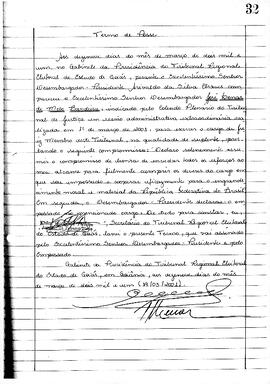 32
Termo de Posse
Aos dezenove dias do mês de março de dois mil e
um, no Gabinete da Presidência do Tribunal Regional
Eleitoral do Estado de Goiás, perante o Excelentíssimo Senhor
Desembargador - Presidente
pareceu o Excelentíssimo Senhor Desembargador José Lenar
de Melo Bandeira, indicado pelo Colendo Plenário do Tribunal
de Justiça em sessão administrativa extraordinária rea
lizada em 1º de março de 2001, para exercer o cargo de
Membro deste Tribunal, na qualidade de
prestando o seguinte compromisso: Declaro solenemente assu-
mir o compromisso de honra de envidar todos os esforços ao
meu alcance para fielmente cumprir os deveres do cargo em
que sou empossado e cooperar eficazmente para o engrande
cimento moral e material da República Federativa do Brasil.
Em seguida, o Desembargador - Presidente declarou o em
possado no mencionado cargo. Do que, para constar,
Secretário do Tribunal Regional Eleitoral
do Estado de Goiás, lavrei o presente Termo, que vai assinado
pelo Excelentíssimo Senhor Desembargador - Presidente e pelo
Empossado.
Gabinete da Presidência do Tribunal Regional Eleitoral
do Estado de Goiás, em Goiânia, aos dezenove dias do mês
de março de dois mil e um (19/03/2001).